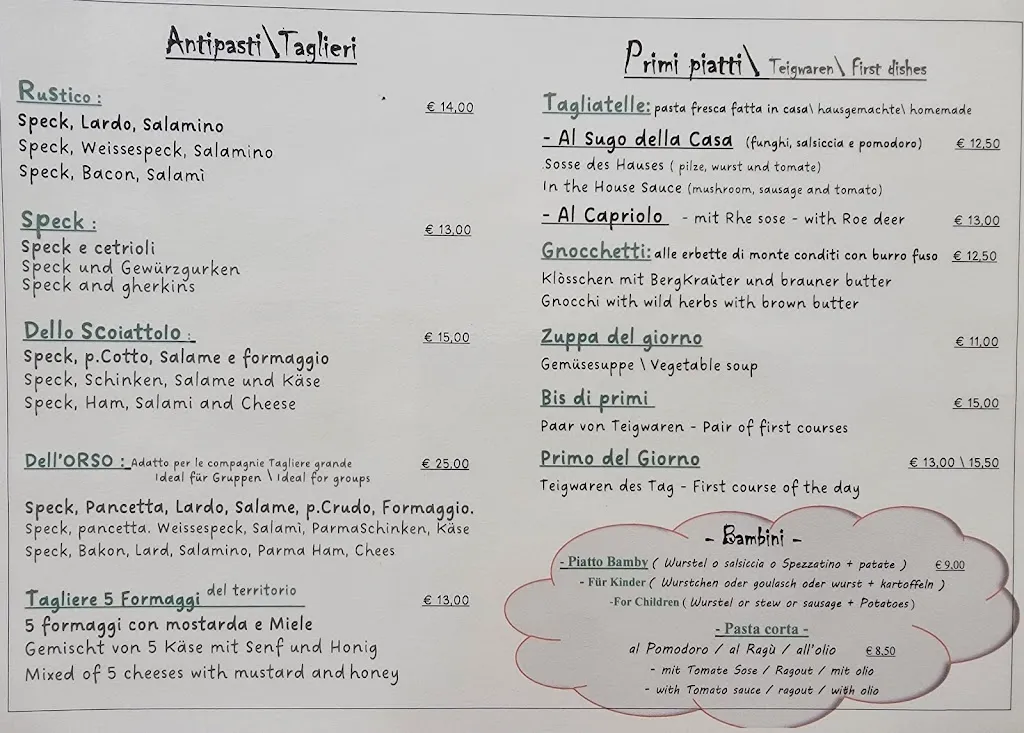 Antipasti\Taglieri
Rustico : € 14,00
Speck, Lardo, Salamino
Speck, Weissespeck, Salamino
Speck, Bacon, Salamì
Speck : € 13,00
Speck e cetrioli
Speck und Gewürzgurken
Speck and gherkins
Dello Scoiattolo : € 15,00
Speck, p.Cotto, Salame e formaggio
Speck, Schinken, Salame und Käse
Speck, Ham, Salami and Cheese
Dell'ORSO : Adatto per le compagnie Tagliere grande € 25,00
Ideal für Gruppen \ Ideal for groups
Speck, Pancetta, Lardo, Salame, p.Crudo, Formaggio.
Speck, pancetta. Weissespeck, Salamì, ParmaSchinken, Käse
Speck, Bakon, Lard, Salamino, Parma Ham, Chees
Tagliere 5 Formaggi del territorio € 13,00
5 formaggi con mostarda e Miele
Gemischt von 5 Käse mit Senf und Honig
Mixed of 5 cheeses with mustard and honey
Primi piatti\ Teigwaren\ First dishes
Tagliatelle: pasta fresca fatta in casa\ hausgemachte\ homemade
- Al Sugo della Casa (funghi, salsiccia e pomodoro) € 12,50
Sosse des Hauses ( pilze, wurst und tomate)
In the House Sauce (mushroom, sausage and tomato)
- Al Capriolo - mit Rhe sose - with Roe deer € 13,00
Gnocchetti: alle erbette di monte conditi con burro fuso € 12,50
Klòsschen mit BergKraùter und brauner butter
Gnocchi with wild herbs with brown butter
Zuppa del giorno € 11,00
Gemüsesuppe \ Vegetable soup
Bis di primi € 15,00
Paar von Teigwaren - Pair of first courses
Primo del Giorno € 13,00 \ 15,50
Teigwaren des Tag - First course of the day
- Bambini -
- Piatto Bamby ( Wurstel o salsiccia o Spezzatino + patate ) € 9,00
- Für Kinder ( Wurstchen oder goulasch oder wurst + kartoffeln )
-For Children ( Wurstel or stew or sausage + Potatoes)
- Pasta corta -
al Pomodoro / al Ragù / all'olio € 8,50
- mit Tomate Sose / Ragout / mit olio
- with Tomato sauce / ragout / with olio